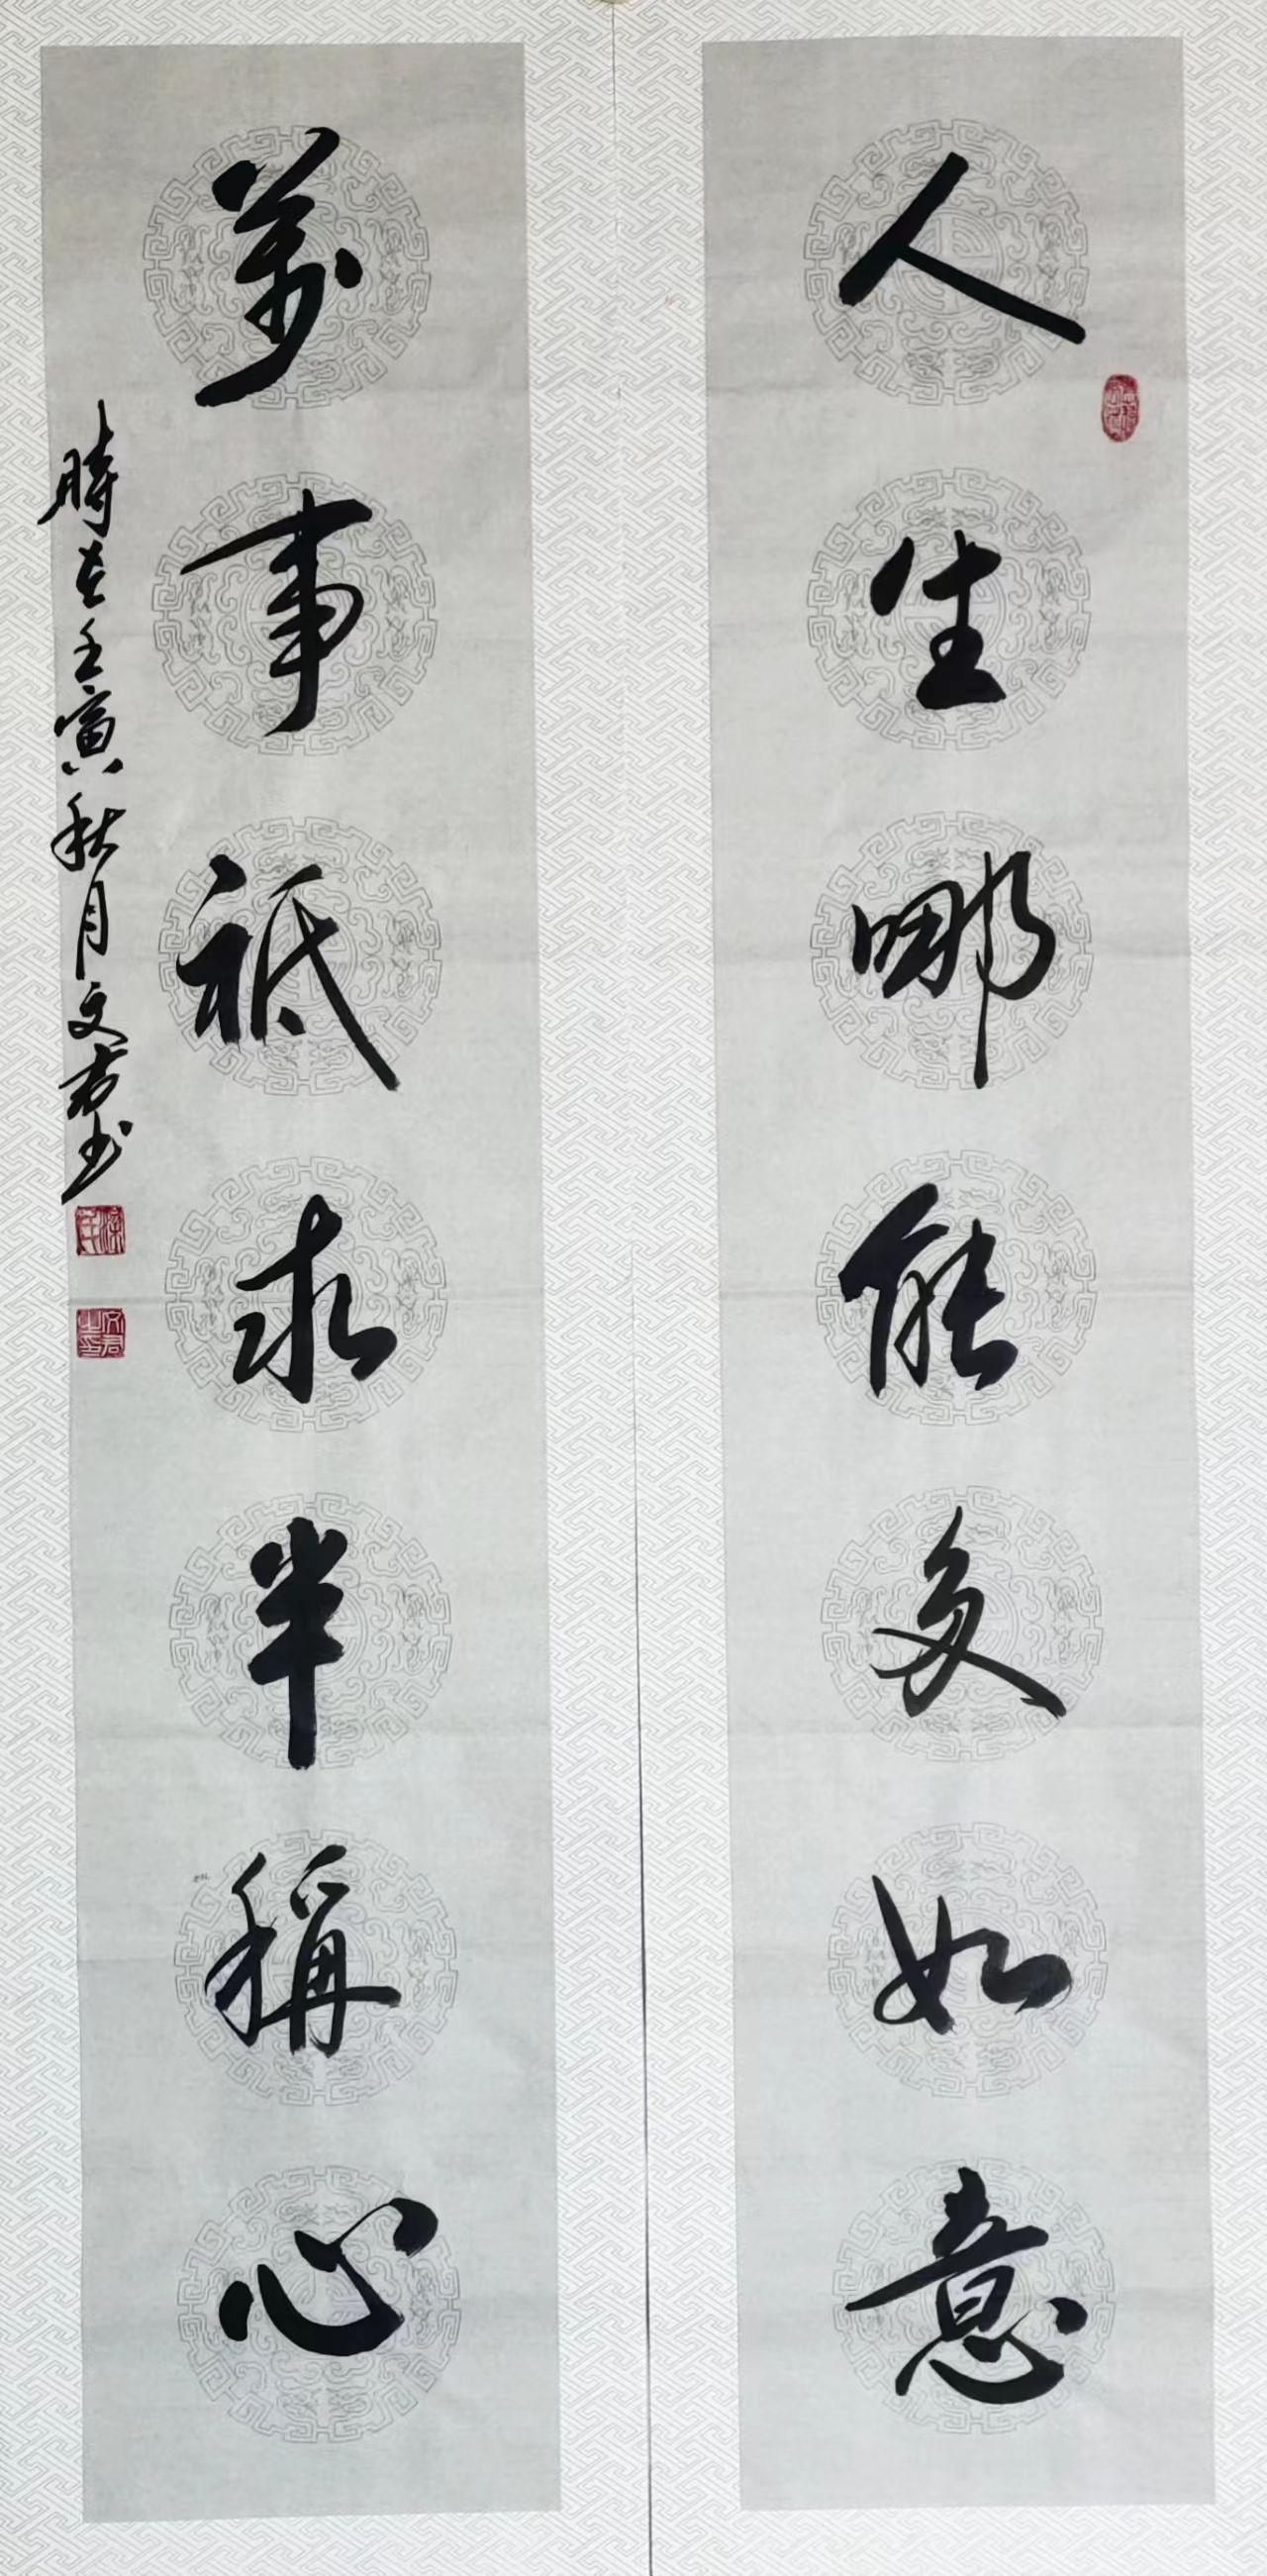 人生哪能多如意
萬事祗求半稱心
時在壬寅秋月文君書